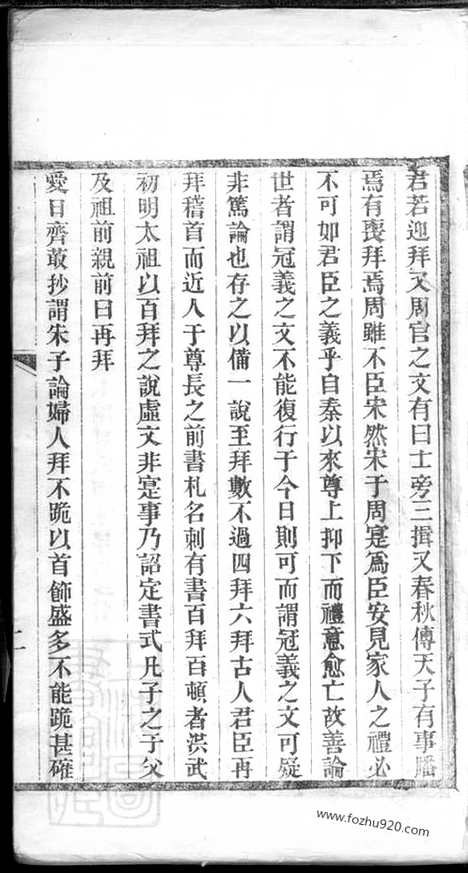 君若迎拜又周官之文有曰士旁三揖又春秋傳天子有事膰
焉有喪拜焉周雖不臣宋然宋于周寔爲臣安見家人之禮必
不可如君臣之義乎自秦以來尊上抑下而禮意愈亡故善論
世者謂冠義之文不能復行于今日則可而謂冠義之文可疑
非篤論也存之以備一說至拜數不過四拜六拜古人君臣再
拜稽首而近人于尊長之前書札名刺有書百拜百頓者洪武
初明太祖以百拜之說虛文非寔事乃詔定書式凡子之于父
及祖前親前曰再拜
愛日齊叢抄謂朱子論婦人拜不跪以首飾盛多不能跪甚確
二
www.fozhu920.com